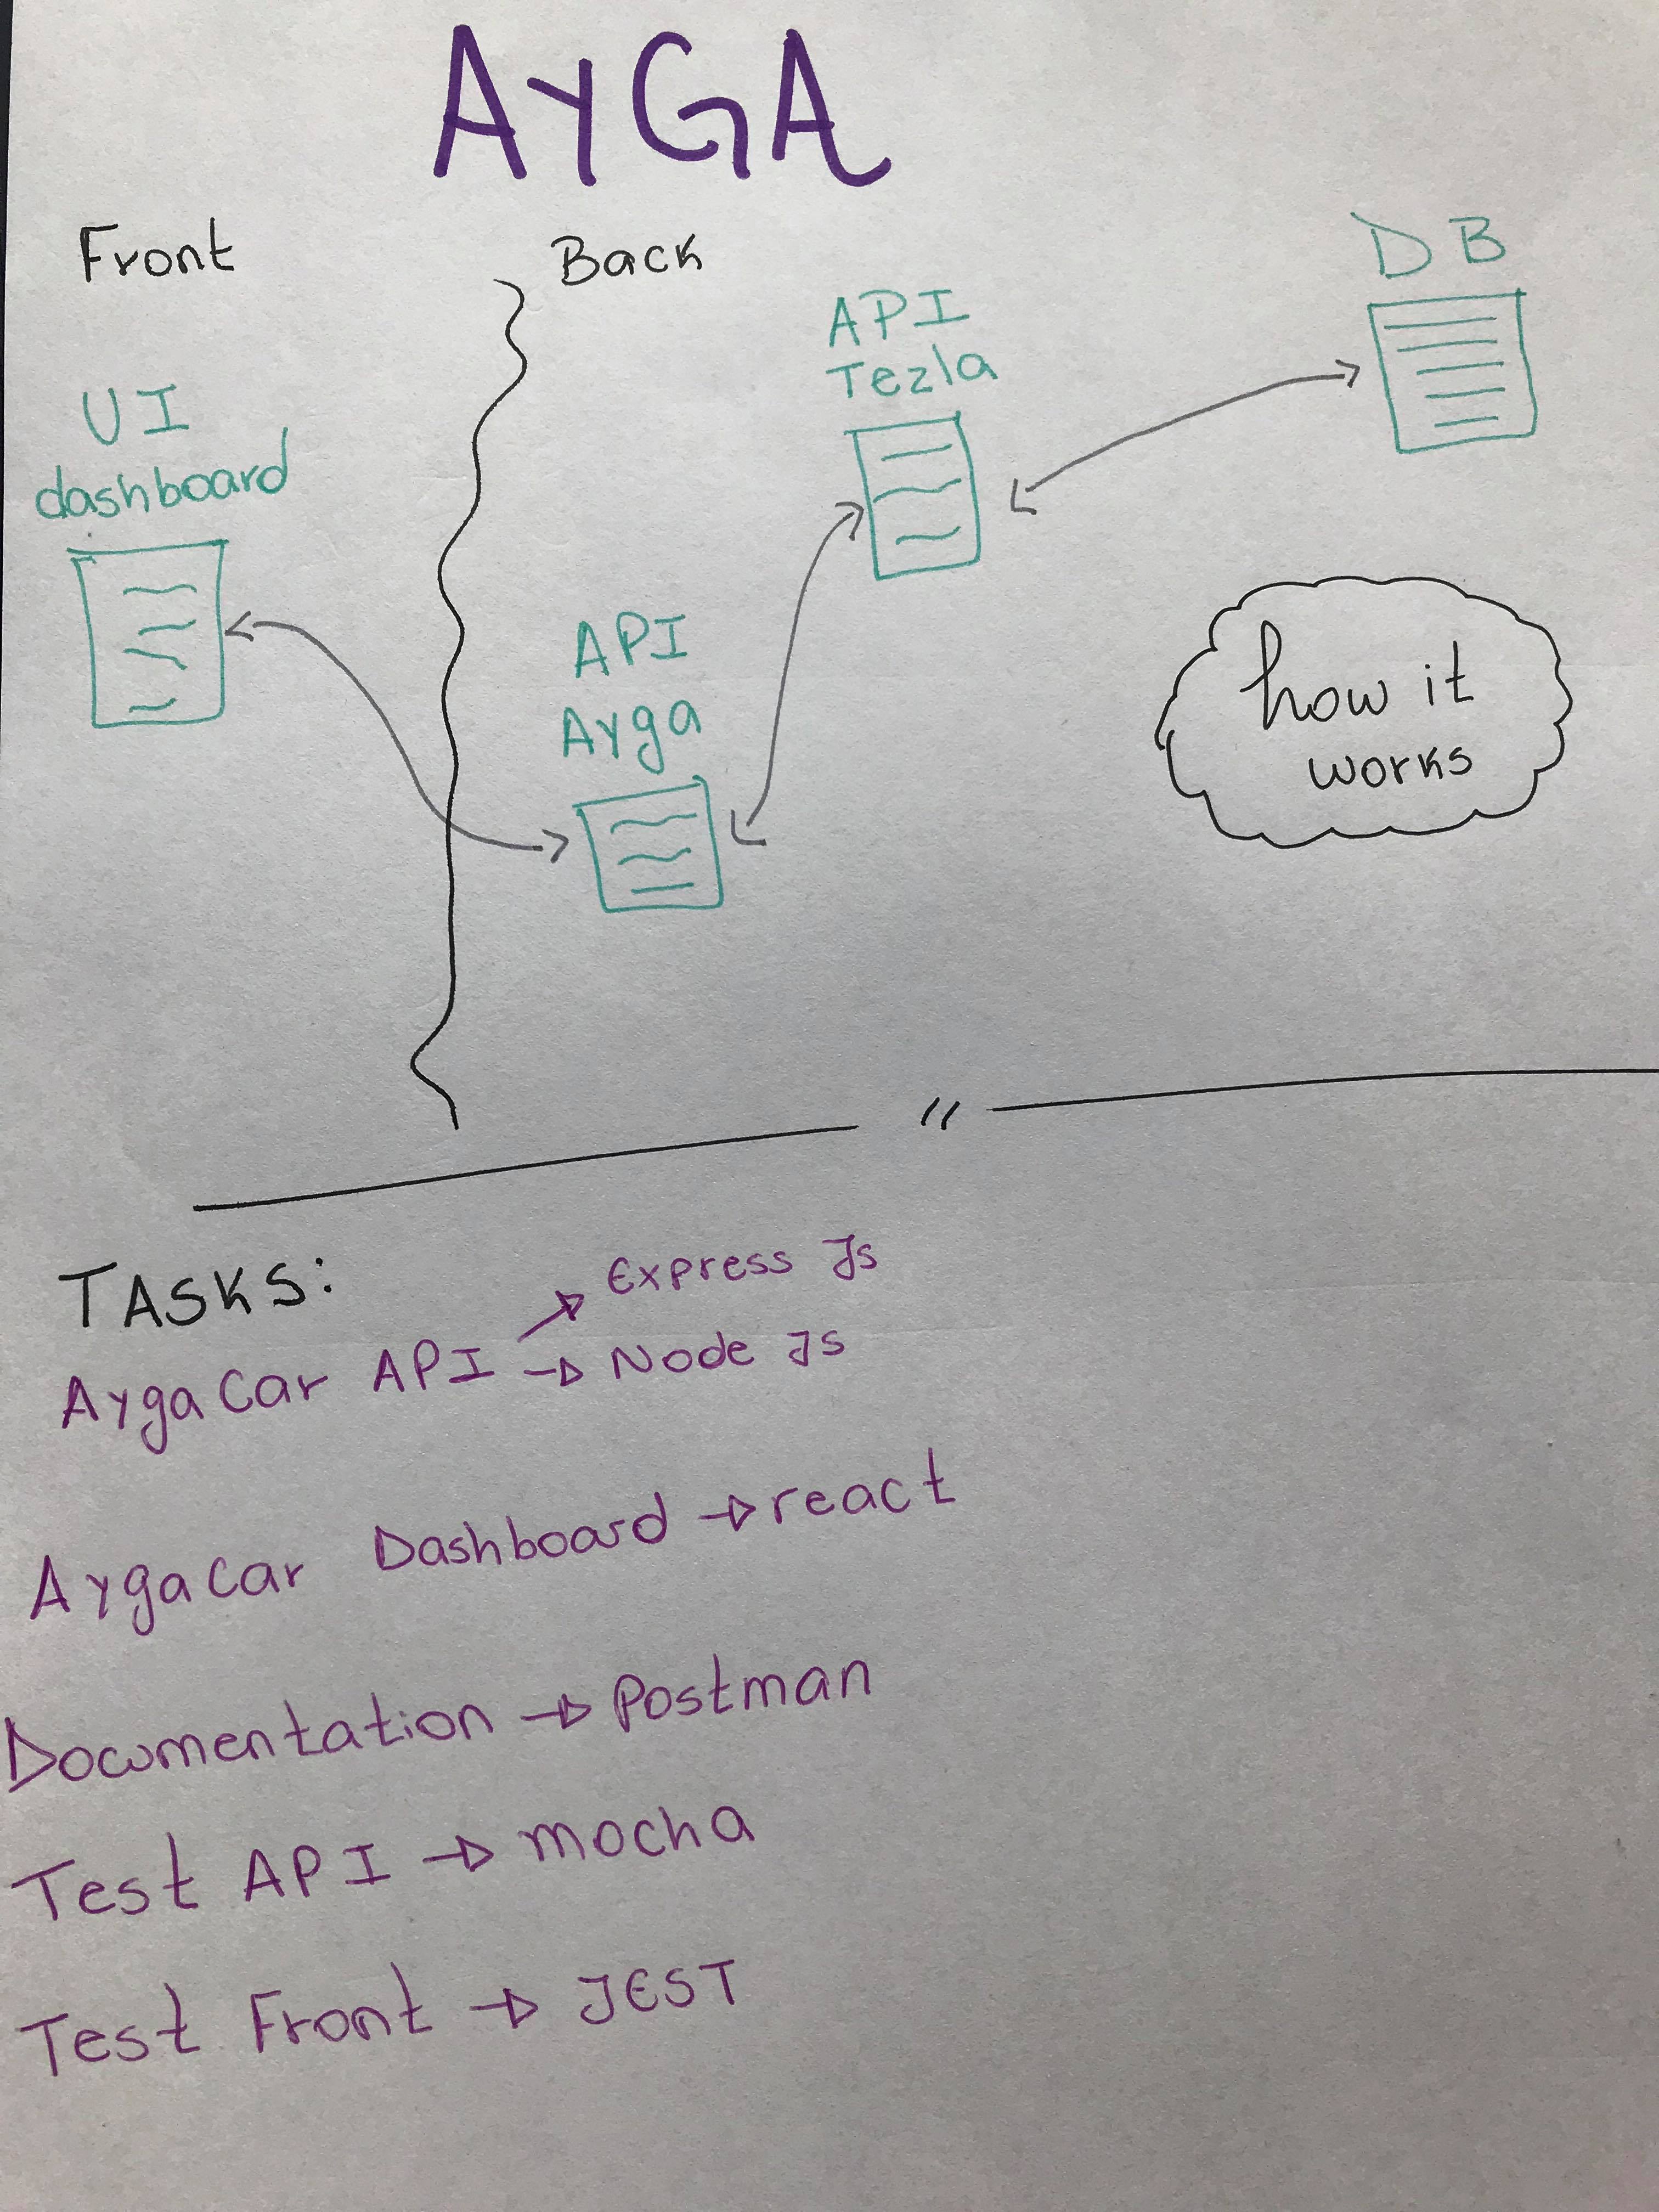 AYGA
Front
Back
DB
API
Tezla
UI
dashboard
API
Ayga
how it
works
TASKS:
Express Js
AygaCar API → Node Js
AygaCar Dashboard → react
Documentation → Postman
Test API → mocha
Test Front → JEST